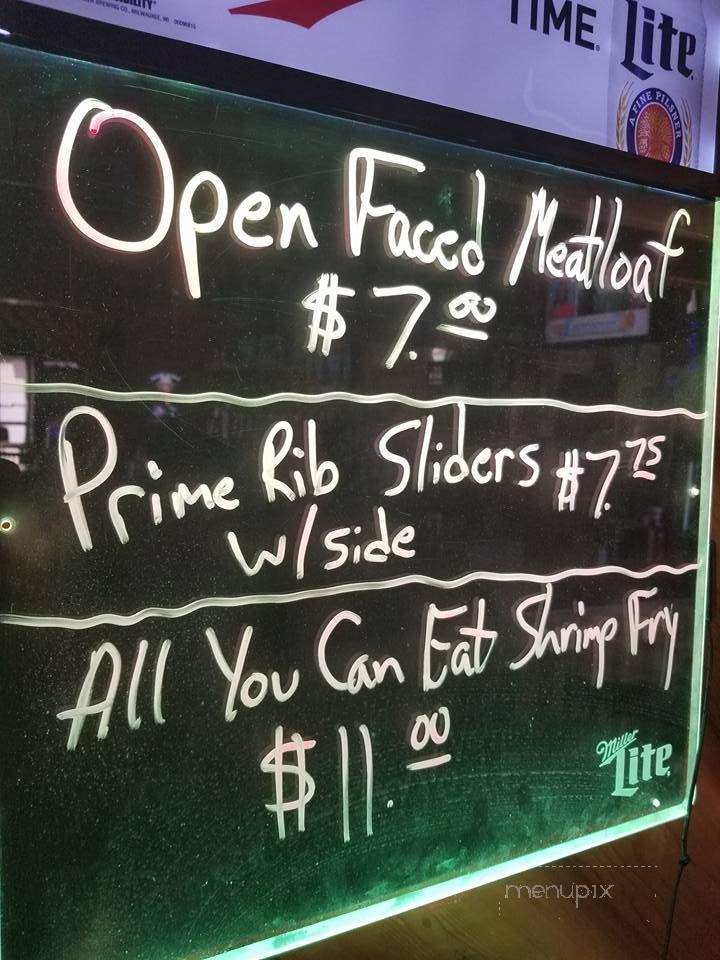 TIME.
Lite
A FINE PILSNER
Open Faced Meatloaf
$7.00
Prime Rib Sliders $7.75
w/side
All You Can Eat Shrimp Fry
$11.00
Miller
Lite
menupix